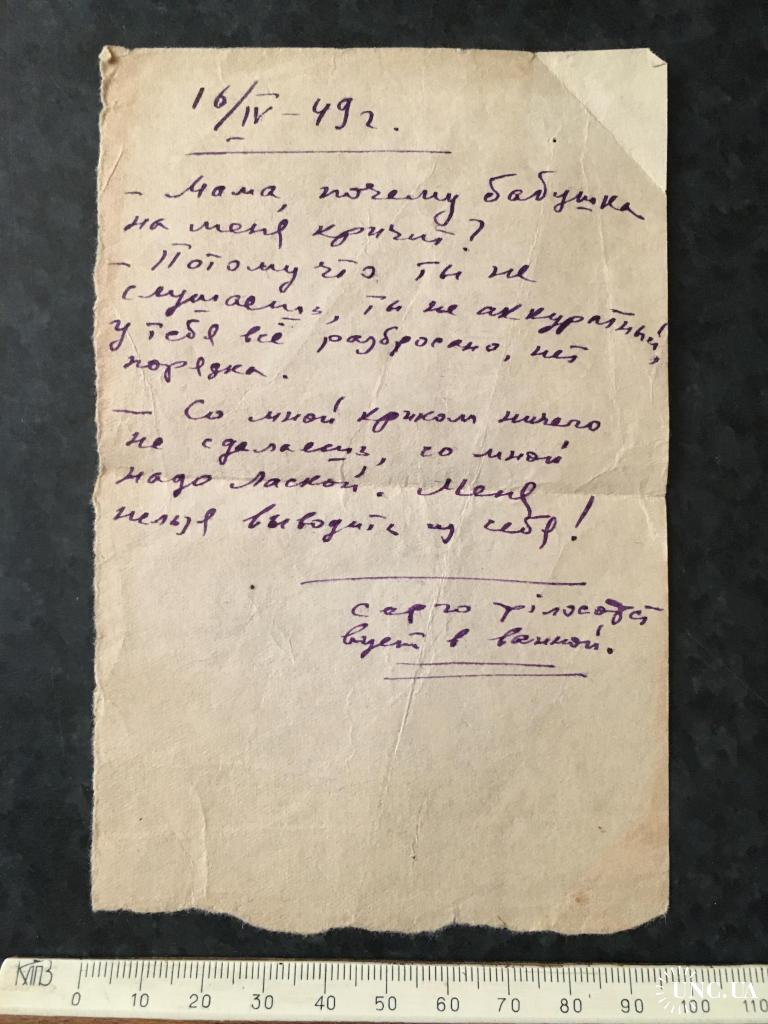 16/IV – 49 г.
– Мама, почему бабушка
на меня кричит?
– Потому что ты не
слушаешь, ты не аккуратный,
у тебя всё разбросано, нет
порядка.
— Со мной криком ничего
не сделаешь, со мной
надо лаской. Меня
нельзя выводить из себя!
серго філосовст
вует в ванной.
КПВЗ
0 10 20 30 40 50 60 70 80 90 100 110
UNC.UA